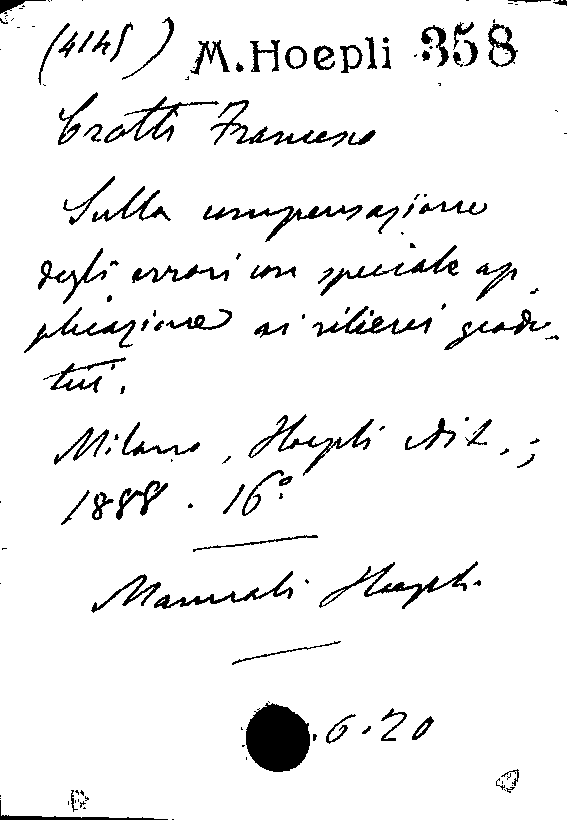 (4145) M. Hoepli 358
Crotti Francesco
Sulla compensazione
degli errori con speciale ap-
plicazione ai rilievi geode-
tici.
Milano, Hoepli edit.;
1888. 16°
Manuali Hoepli.
.6.20